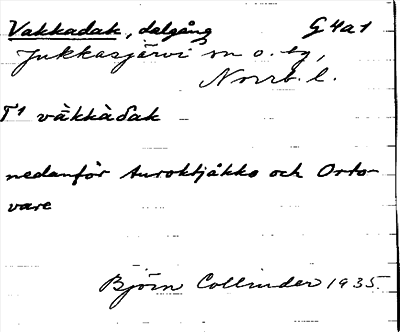 Vakkadak, dalgång G4a1
Jukkasjärvi sn o. tg,
Norrb. l.
T1 vàkkàδak
nedanför Auroktjåkko och Orto-
vare
Björn Collinder 1935.